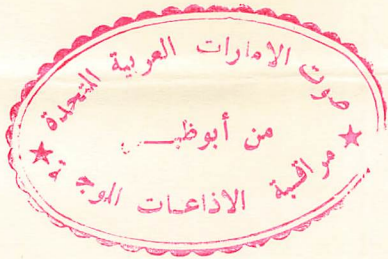 صوت الامارات العربية المتحدة
من أبوظبي
مراقبة الاذاعات الموجهة